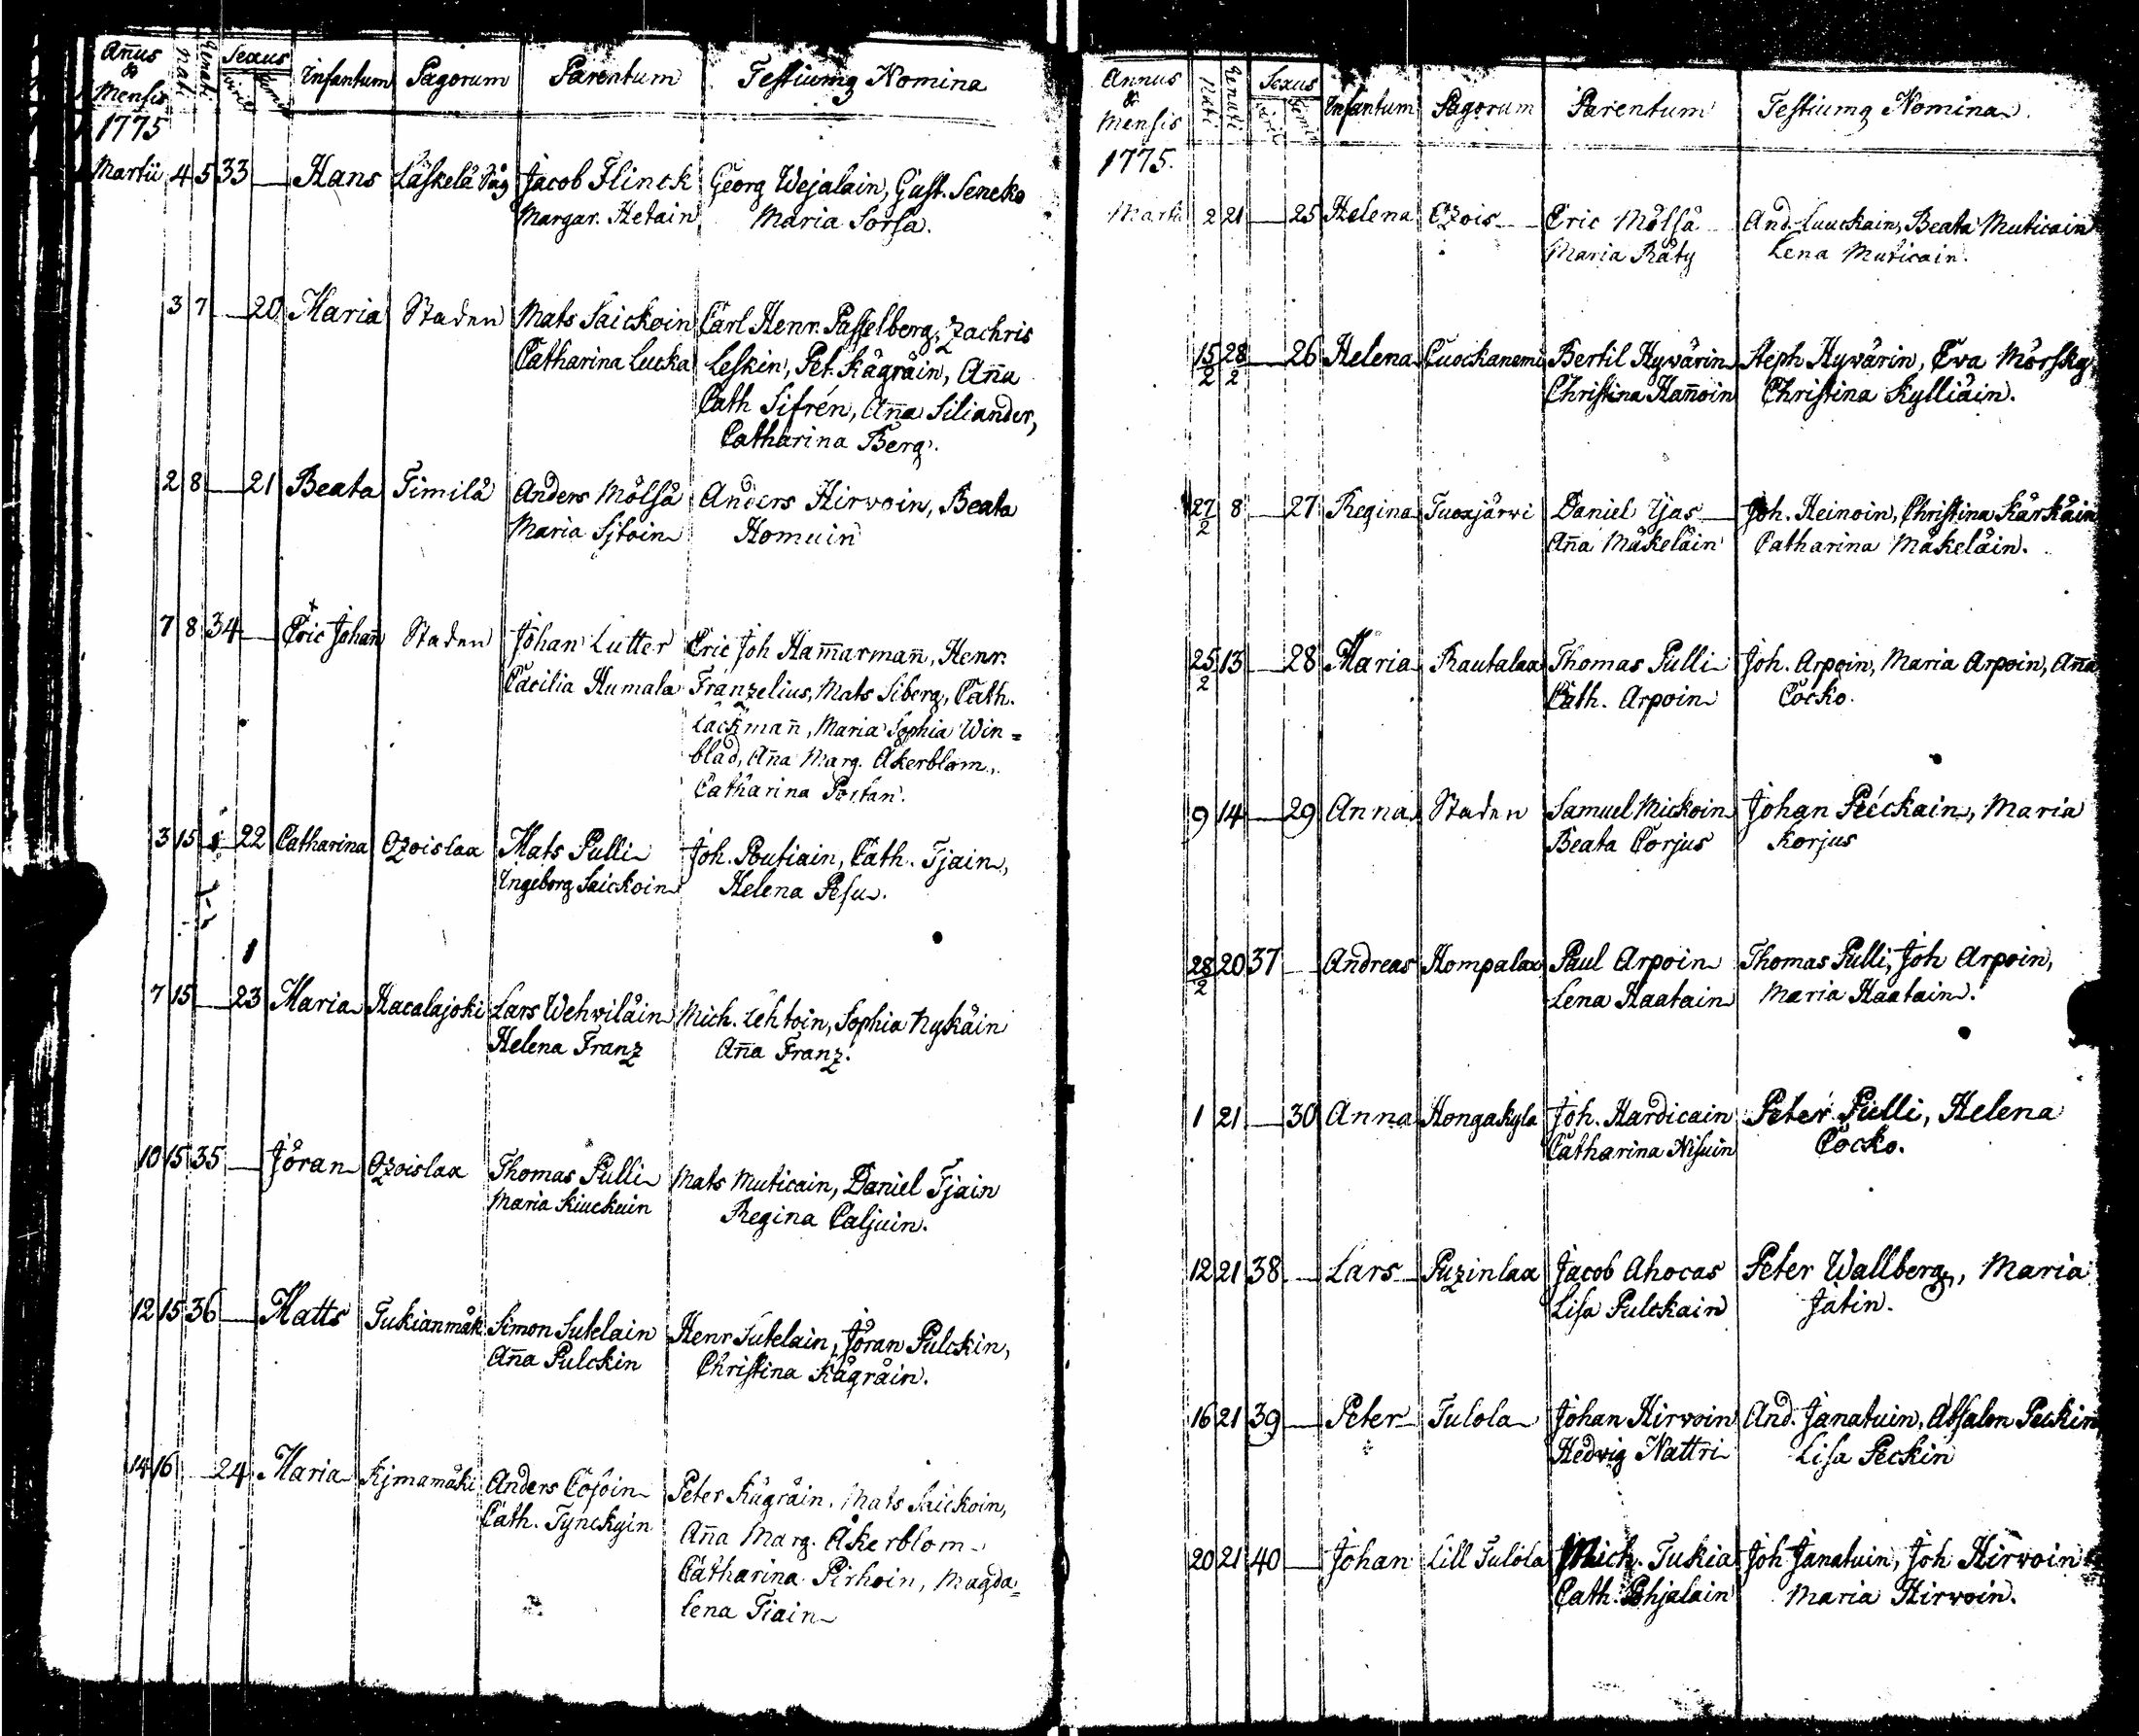 Añus & Mensis Nati Renati Sexus Viril Femin Infantum Pagorum Parentum Testiumq Nomina
1775
Martii 4 5 33 — Hans Läskelä Såg Jacob Flinck Georg Wejalain, Gust. Senecko
Margar. Hetain Maria Sorsa.
3 7 — 20 Maria Staden Mats Saickoin Carl Henr. Passelberg, Zachris
Catharina Lucka Leskin, Pet. Kägräin, Aña
Cath Sifrén, Aña Siliander,
Catharina Berg.
2 8 — 21 Beata Timilä Anders Mölsä Anders Hirvoin, Beata
Maria Sjtoin Homuin
7 8 34 — Eric Johañ Staden Johan Lutter Eric Joh Ham̄armañ, Henr.
Cäcilia Humala Franzelius, Mats Siberg, Cath.
Lackmañ, Maria Sophia Win=
blad, Aña Marg. Åkerblom,
Catharina Postan.
3 15 — 22 Catharina Ozoislax Mats Pulli Joh. Poutiain, Cath. Tjain,
Ingeborg Saickoin Helena Pesu.
7 15 — 23 Maria Hacalajoki Lars Wehviläin Mich. Lehtoin, Sophia Nykäin
Helena Franz Aña Franz.
10 15 35 — Jöran Ozoislax Thomas Pulli Mats Muticain, Daniel Tjain
Maria Kiuckuin Regina Caljuin.
12 15 36 — Matts Tukianmäk Simon Sutelain Henr Sutelain, Jöran Pulckin,
Aña Pulckin Christina Kägräin.
14 16 — 24 Maria Kjmamäki Anders Cosoin Peter Kägräin, Mats Saickoin,
Cath. Tynckyin Aña Marg. Åkerblom
Catharina Pirhoin, Magda=
lena Tiain
Annus & Mensis Nati Renati Sexus Viril Femin Infantum Pagorum Parentum Testiumq Nomina
1775.
Martii 2 21 — 25 Helena Ozois Eric Mölsä And. Luuckain, Beata Muticain
Maria Räty Lena Muticain.
15/2 28/2 — 26 Helena Cuockanemi Bertil Hyvärin Steph Hyvärin, Eva Mörsky,
Christina Hañoin Christina Kylliäin.
27/2 8 — 27 Regina Tuoxjärvi Daniel Ijas Joh. Heinoin, Christina Kärkäin
Aña Mäkeläin Catharina Mäkeläin.
25/2 13 — 28 Maria Rautalax Thomas Pulli Joh. Arpoin, Maria Arpoin, Aña
Cath. Arpoin Cocko.
9 14 — 29 Anna Staden Samuel Mickoin Johan Peéckain, Maria
Beata Corjus Korjus
28/2 20 37 — Andreas Hompalax Paul Arpoin Thomas Pulli, Joh Arpoin,
Lena Haatain Maria Haatain.
1 21 — 30 Anna Hongakyla Joh. Hardicain Peter Pulli, Helena
Catharina Nisuin Cocko.
12 21 38 — Lars Puzinlax Jacob Ahocas Peter Wallberg, Maria
Lisa Pulckain Jatin.
16 21 39 — Peter Tulola Johan Hirvoin And. Janatuin, Absalon Peckin
Hedvig Nattri Lisa Peckin
20 21 40 — Johan Lill Tulola Mich. Tukia Joh Janatuin, Joh Hirvoin
Cath. Pohjalain Maria Hirvoin.